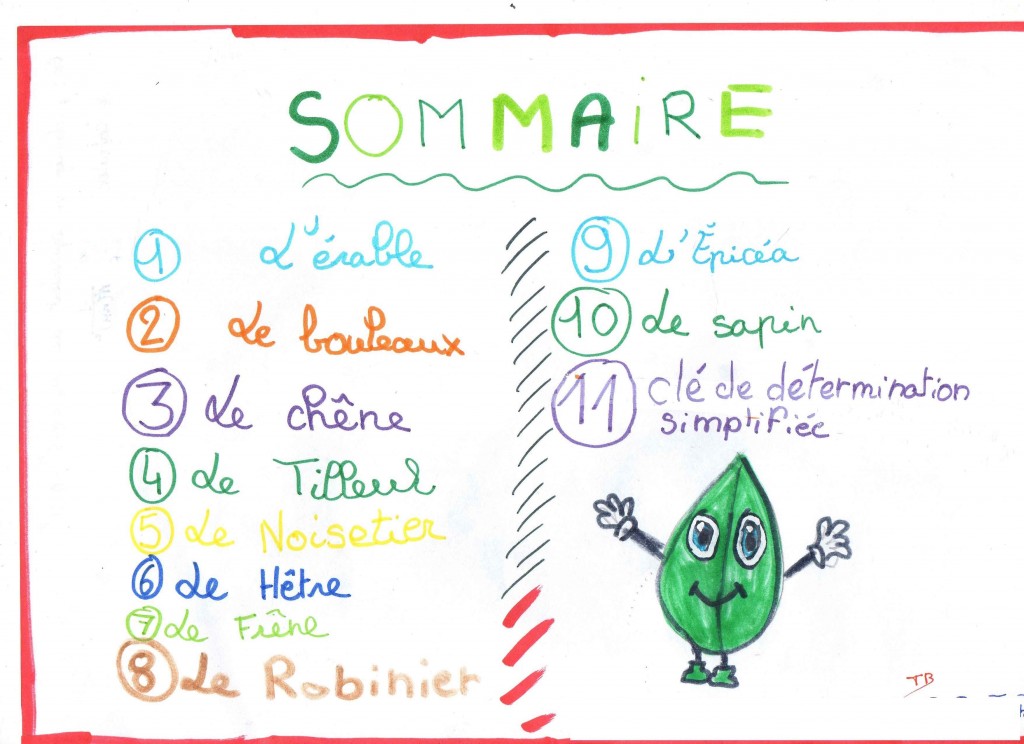 SOMMAiRE
1 L'érable
2 Le bouleaux
3 Le chêne
4 Le Tilleul
5 Le Noisetier
6 Le Hêtre
7 Le Frêne
8 Le Robinier
9 L'Épicéa
10 Le sapin
11 clé de détermination
simplifiée
TB